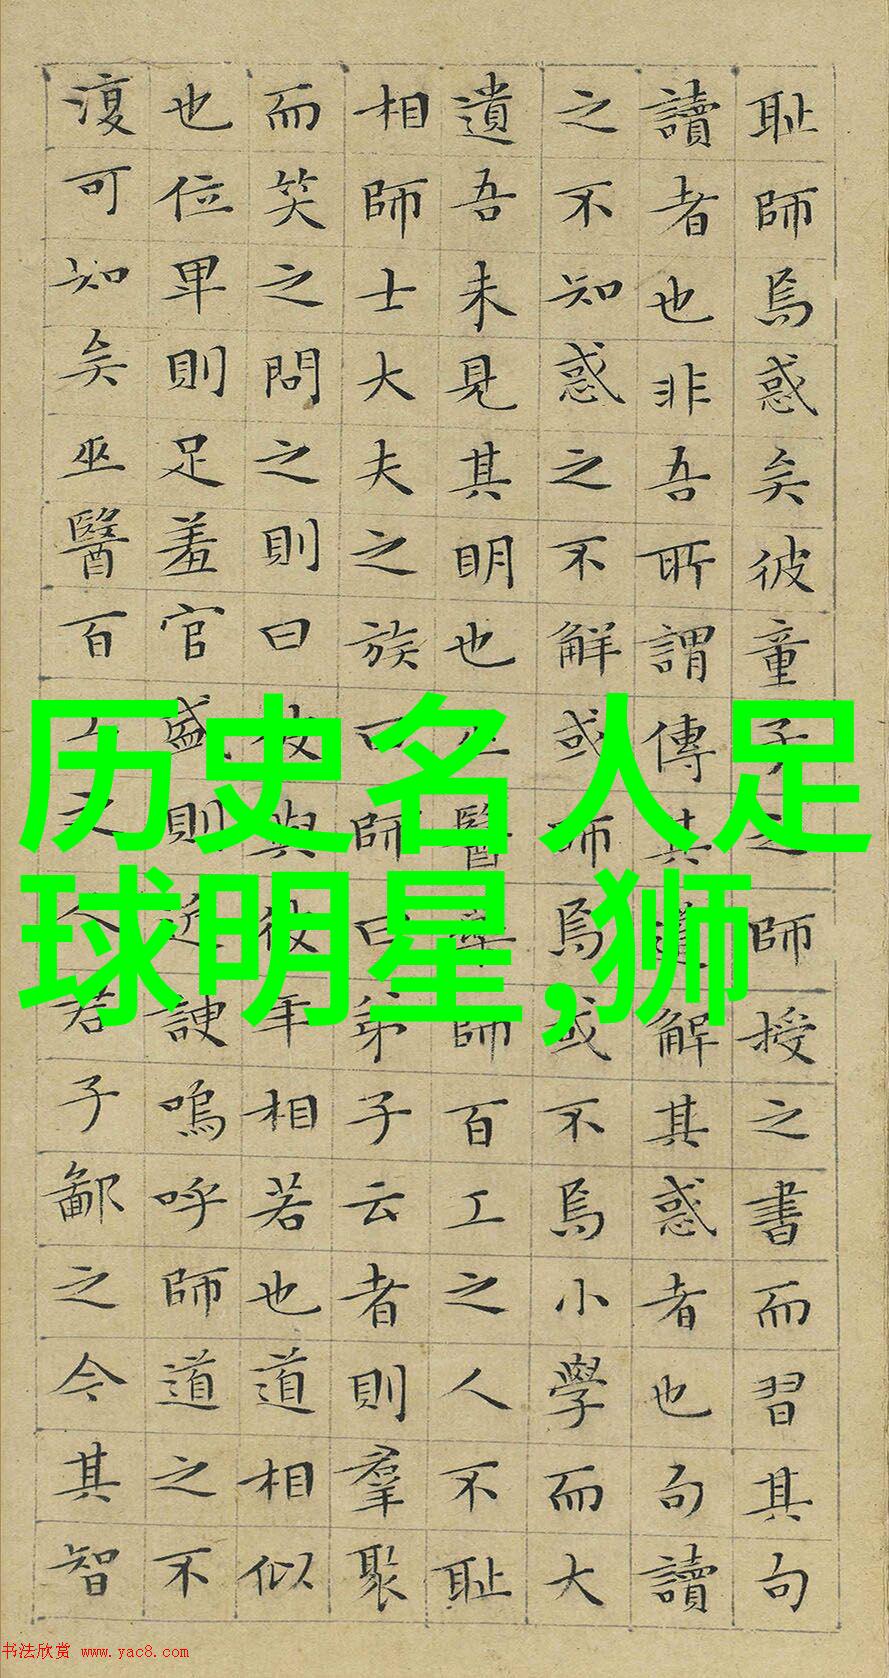 耻師焉惑矣彼童子之師授之書而習其句
讀者也非吾所謂傳其道解其惑者也句讀
之不知惑之不解或師焉或不焉小學而大
遺吾未見其明也巫醫樂師百工之人不耻
相師士大夫之族曰師曰弟子云者則羣聚
而笑之問之則曰彼與彼年相若也道相似
也位卑則足羞官盛則近諛嗚呼師道之不
復可知矣巫醫百工之人君子鄙之今其智
历史名人足
球明星,狮
书法欣赏 www.yac8.com